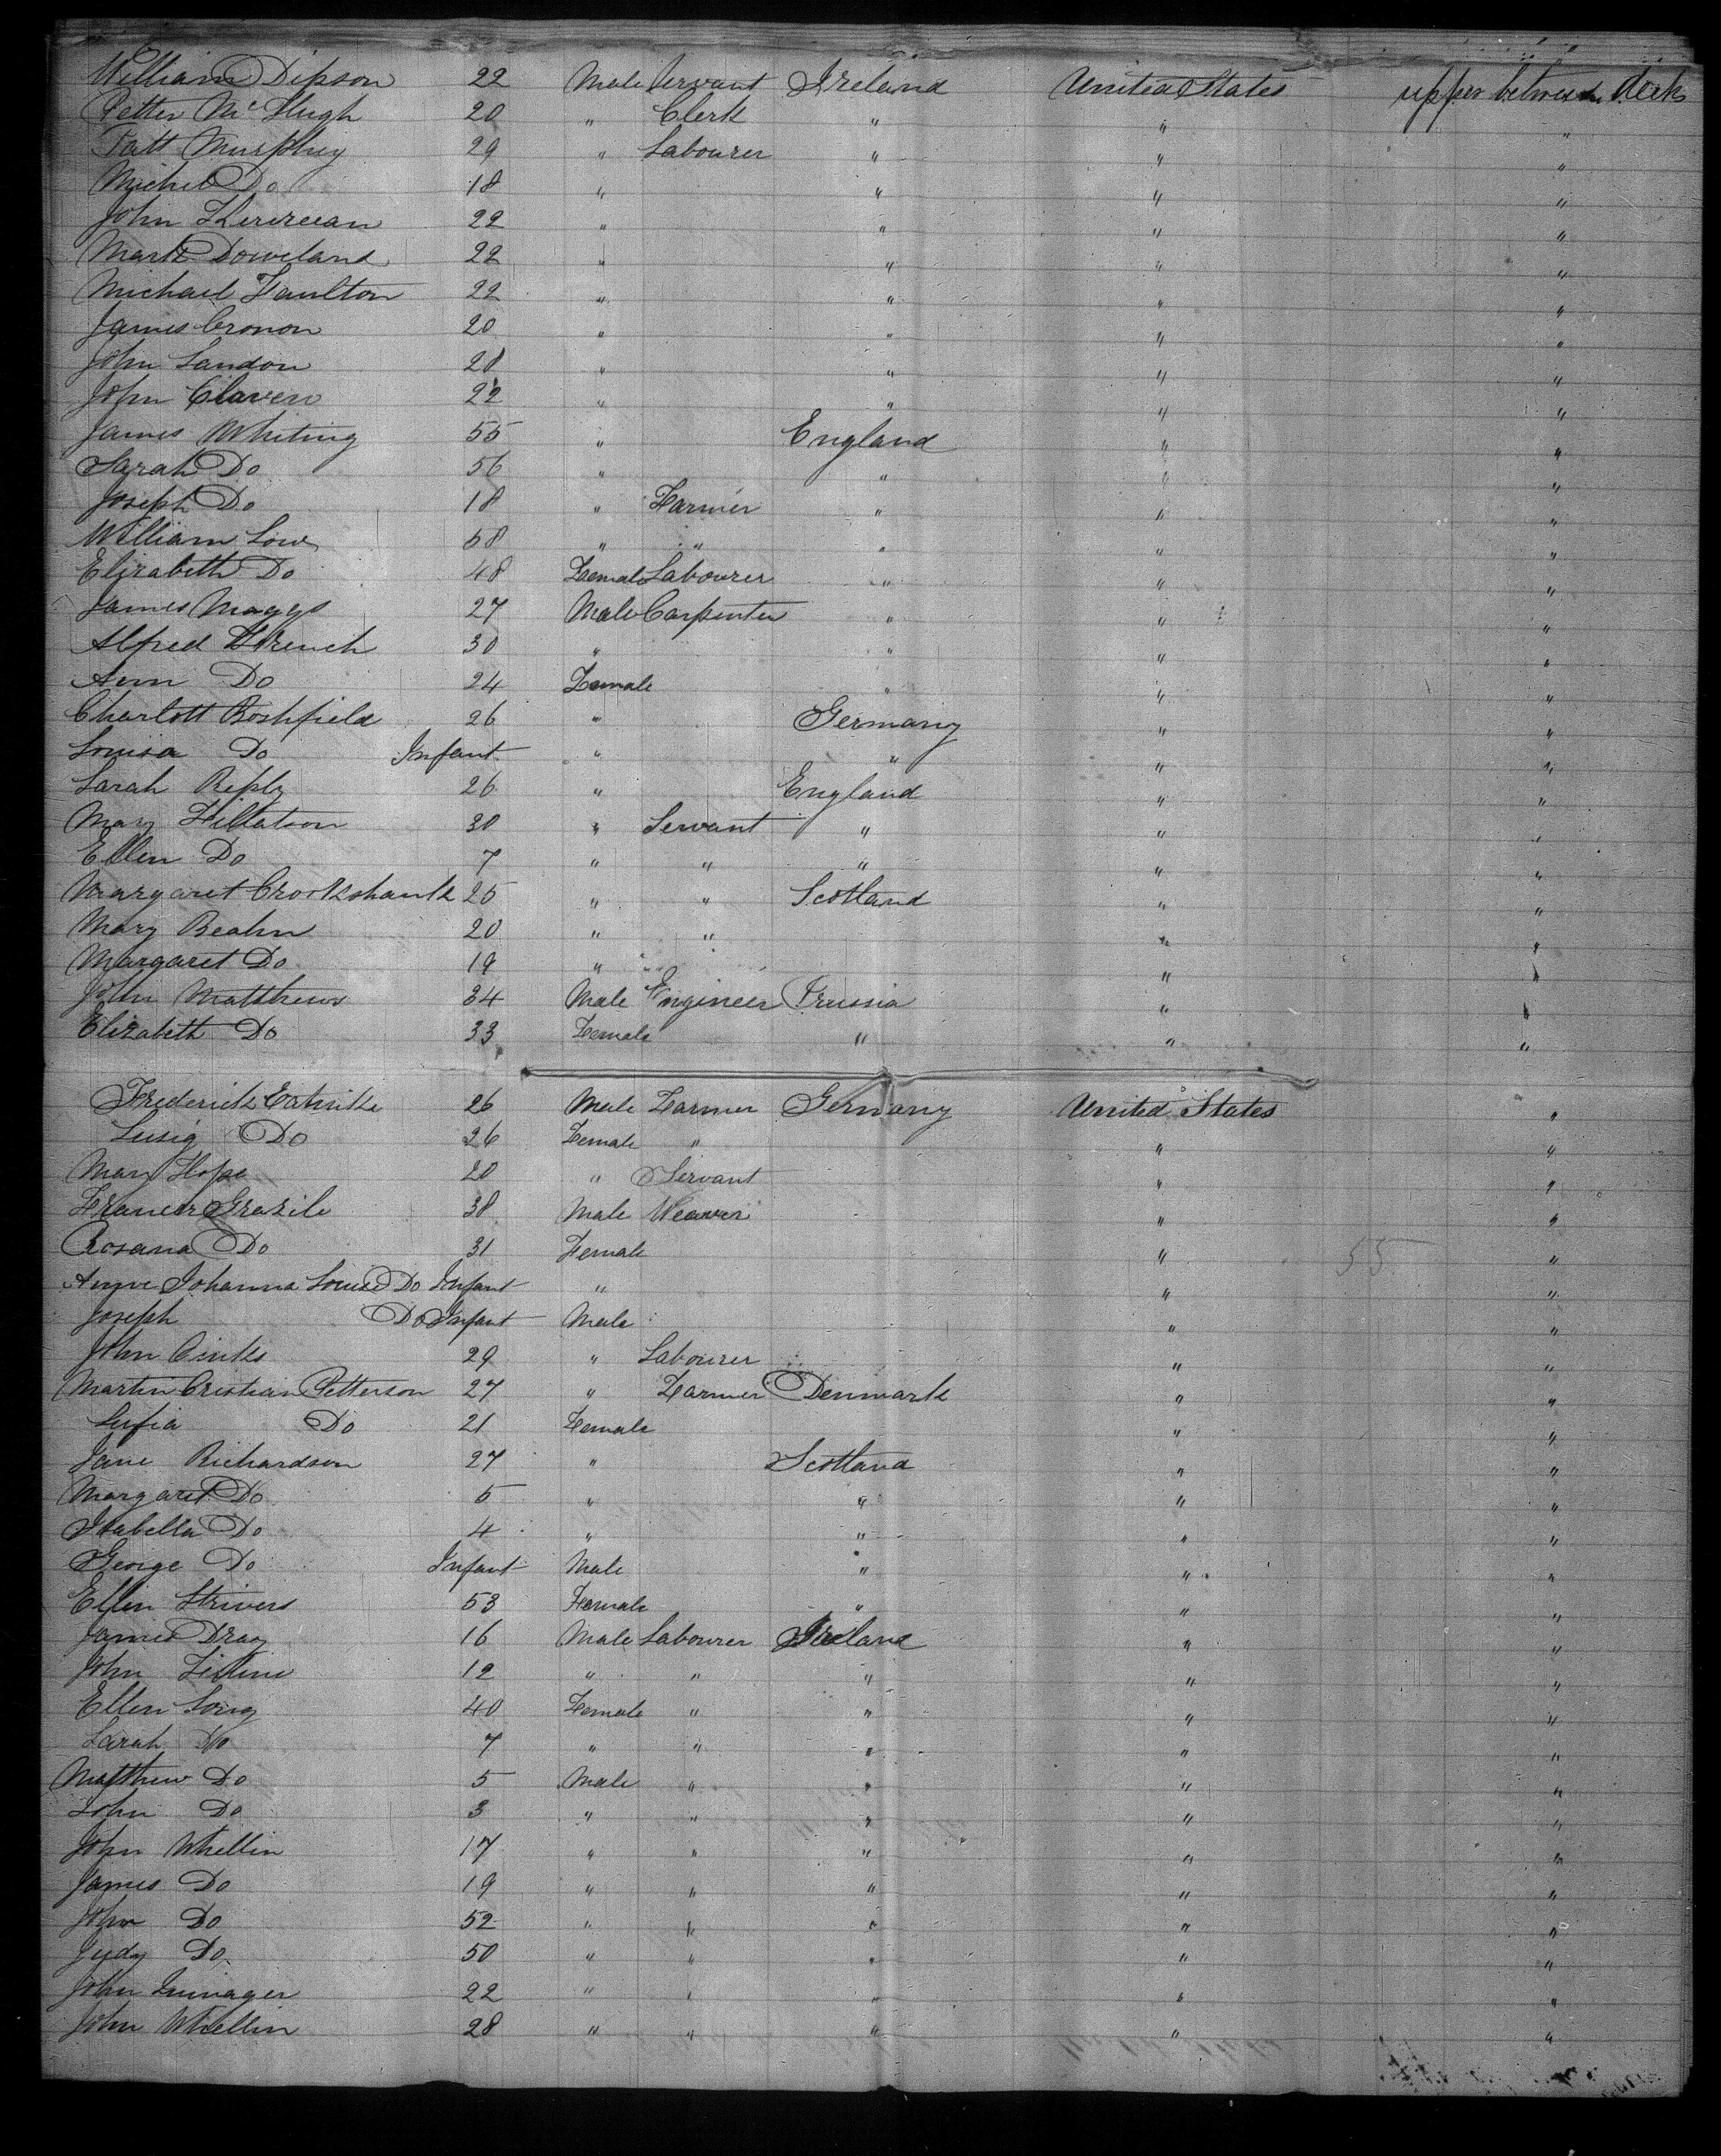 William Dipson 22 Male Servant Ireland United States upper between decks
Petter Mc Hugh 20 " Clerk " " "
Patt Murphey 29 " Labourer " " "
Michel Do 18 " " " "
John 22 " " " "
Mark Doweland 22 " " " "
Michael Faulton 22 " " " "
James Cronon 20 " " " "
John Landon 28 " " " "
John Claven 22 " " " "
James Whiting 55 " England " "
Sarah Do 56 " " " "
Joseph Do 18 " Farmer " " "
William Low 58 " " " " "
Elizabeth Do 48 Femal Labourer " " "
James Maggs 27 Male Carpenter " " "
Alfred French 30 " " " "
Ann Do 24 Female " " "
Charlott Boshfield 26 " Germany " "
Louisa Do Infant " " " "
Sarah Reply 26 " England " "
Mary Fillatson 30 " Servant " " "
Ellen Do 7 " " " " "
Margaret Crookshank 25 " " Scotland " "
Mary Beahn 20 " " " "
Margaret Do 19 " " " "
John Matthews 34 Male Engineer Prussia " "
Elizabeth Do 33 Female " " "
Frederick 26 Male Farmer Germany United States "
Do 26 Female " " "
Mary Hope 20 " Servant " "
Grazile 38 Male Weaver " "
Rosana Do 31 Female " 55 "
Johanna Louise Do Infant " " "
Joseph Do Infant Male " "
John 29 " Labourer " "
Martin Cristian Petterson 27 " Farmer Denmark " "
Sufia Do 21 Female " "
Jane Richardson 27 " Scotland " "
Margaret Do 5 " " " "
Isabella Do 4 " " " "
George Do Infant Male " " "
Ellen Strivers 53 Female " " "
James Dray 16 Male Labourer Ireland " "
John 12 " " " " "
Ellen Long 40 Female " " " "
Sarah Do 7 " " " " "
Matthew Do 5 Male " " " "
John Do 3 " " " " "
John Whellin 17 " " " " "
James Do 19 " " " " "
John Do 52 " " " " "
Judy Do 50 " " " " "
John 22 " " " " "
John Whellin 28 " " " " "